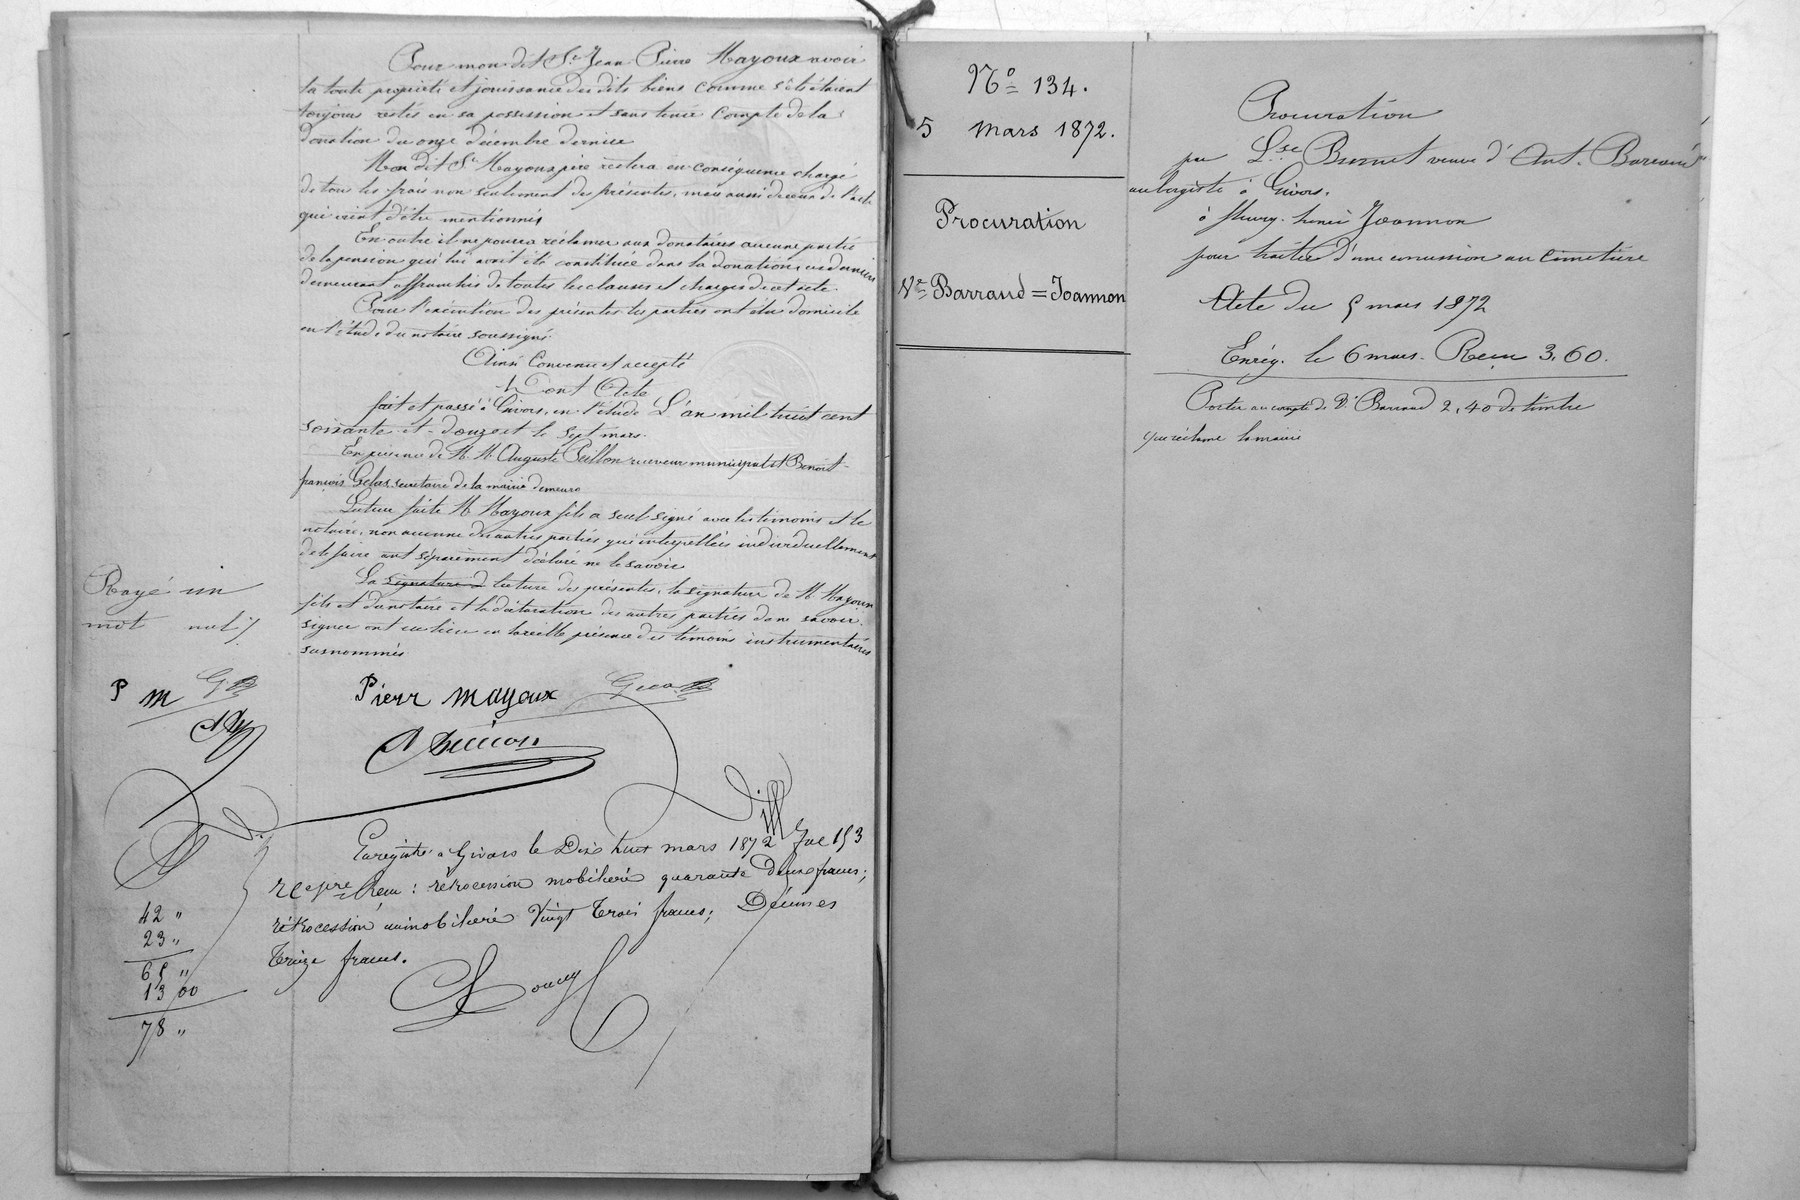 Pour mon dit Sr Jean Pierre Mayoux avoir
la toute propriété et jouissance des dits biens comme s'ils étaient
toujours restés en sa possession et sans tenir compte de la
donation du onze décembre dernier
Mon dit Sr Mayoux père restera en conséquence chargé
de tous les frais non seulement des présentes, mais aussi de ceux de l'acte
qui vient d'être mentionné
En outre il ne pourra réclamer aux donataires aucune partie
de la pension qui lui avait été constituée dans la donation, ces derniers
demeurant affranchis de toutes les clauses et charges de cet acte
Pour l'exécution des présentes les parties ont élu domicile
en l'étude du notaire soussigné
Ainsi convenu et accepté
Dont Acte
fait et passé à Givors, en l'étude L'an mil huit cent
soixante-et-douze et le sept mars.
En présence de M. M. Auguste Peillon receveur municipal et Benoit-
françois Gelas secrétaire de la mairie demeure
Lecture faite M Mayoux fils a seul signé avec les témoins et le
notaire, non aucune des autres parties qui interpellées individuellement
de le faire ont séparément déclaré ne le savoir
La signature d lecture des présentes, la signature de M. Mayoux
fils et du notaire et la déclaration des autres parties de ne savoir
signer ont eu lieu en la réelle présence des témoins instrumentaires
susnommés
Rayé un
mot nul
P m
Pierr mayoux
Enregistré à Givors le Dix huit mars 1872 fol 153
Rec pre Reçu : rétrocession mobilière quarante Deux francs;
rétrocession immobilière Vingt trois francs; Décimes
treize francs.
42 "
23 "
65 "
13 00
78 "
No 134.
5 mars 1872.
Procuration
Ve Barraud = Joannon
Procuration
par Lse Brunet veuve d'Ant. Barraud
aubergiste à Givors.
à fleury Joannon
pour traiter d'une concession au cimetière
Acte du 5 mars 1872
Enrég. le 6 mars. Reçu 3,60.
Porter au compte de Ve Barraud 2,40 de timbre
que réclame la mairie